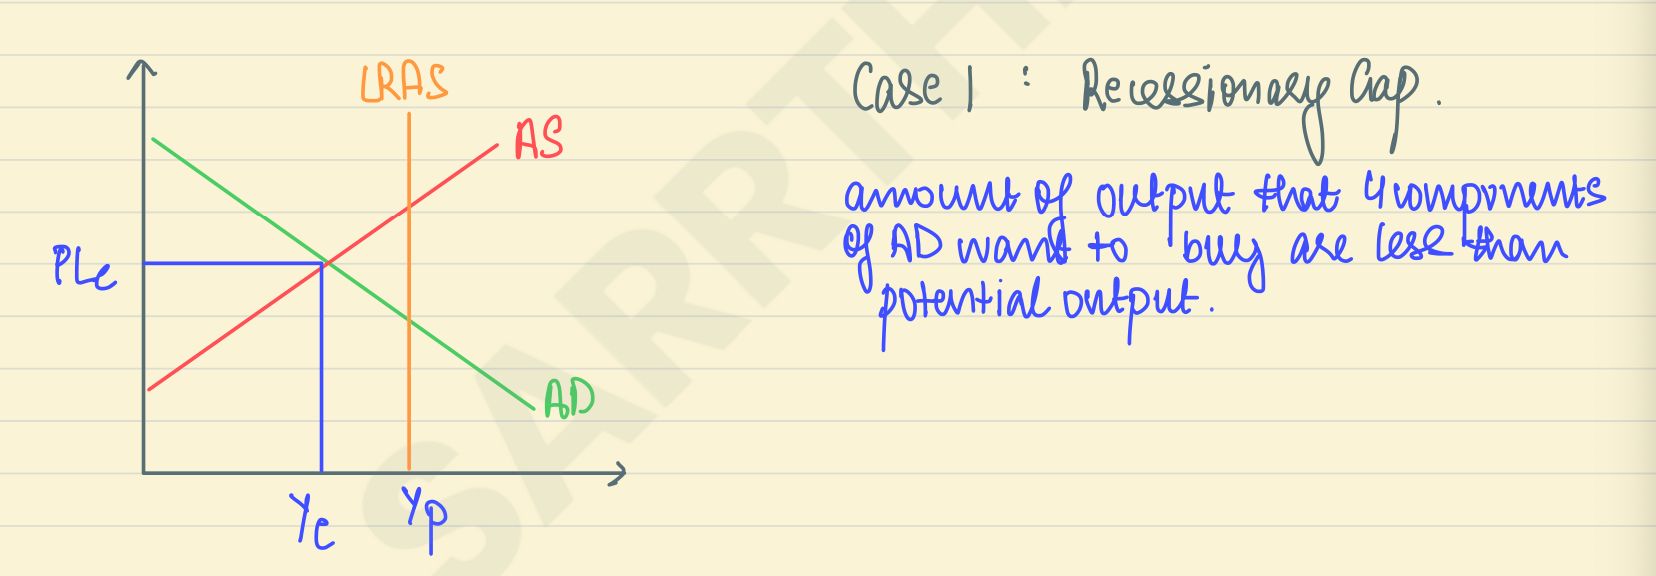 LRAS
AS
PLe
AD
Ye
Yp
Case 1 : Recessionary Gap.
amount of output that 4 components
of AD want to buy are less than
potential output.
SARTH